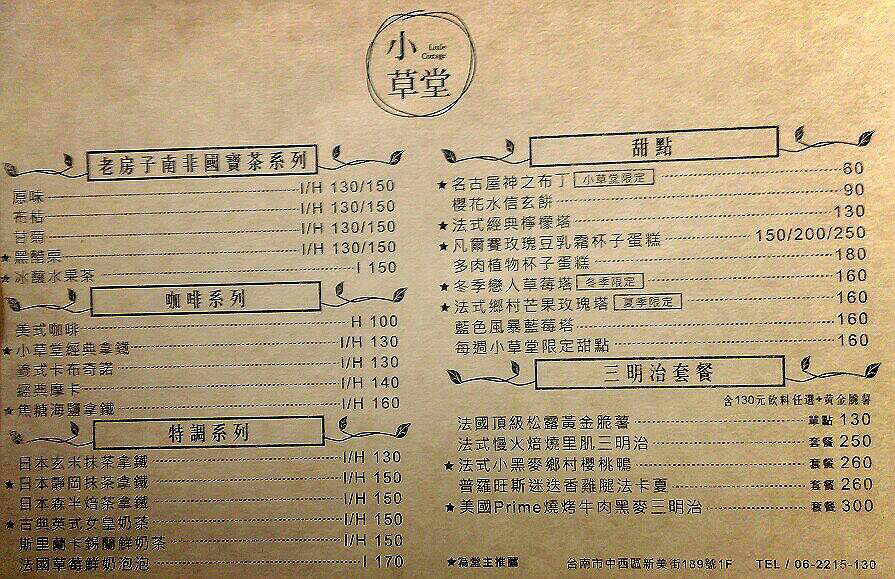 小草堂
Little
Cottage
老房子南非國寶茶系列
原味 I/H 130/150
布枯 I/H 130/150
甘菊 I/H 130/150
★黑醋栗 I/H 130/150
★冰釀水果茶 I 150
咖啡系列
美式咖啡 H 100
★小草堂經典拿鐵 I/H 130
義式卡布奇諾 I/H 130
經典摩卡 I/H 140
★焦糖海鹽拿鐵 I/H 160
特調系列
日本玄米抹茶拿鐵 I/H 130
★日本靜岡抹茶拿鐵 I/H 150
日本森半焙茶拿鐵 I/H 150
★古典英式女皇奶茶 I/H 150
斯里蘭卡錫蘭鮮奶茶 I/H 150
法國草莓鮮奶泡泡 I 170
甜點
★名古屋神之布丁 小草堂限定 60
櫻花水信玄餅 90
★法式經典檸檬塔 130
★凡爾賽玫瑰豆乳霜杯子蛋糕 150/200/250
多肉植物杯子蛋糕 180
★冬季戀人草莓塔 冬季限定 160
★法式鄉村芒果玫瑰塔 夏季限定 160
藍色風暴藍莓塔 160
每週小草堂限定甜點 160
三明治套餐
含130元飲料任選+黃金脆薯
法國頂級松露黃金脆薯 單點 130
法式慢火焙燒里肌三明治 套餐 250
★法式小黑麥鄉村櫻桃鴨 套餐 260
普羅旺斯迷迭香雞腿法卡夏 套餐 260
★美國Prime燒烤牛肉黑麥三明治 套餐 300
★為堂主推薦 台南市中西區新美街189號1F TEL / 06-2215-130